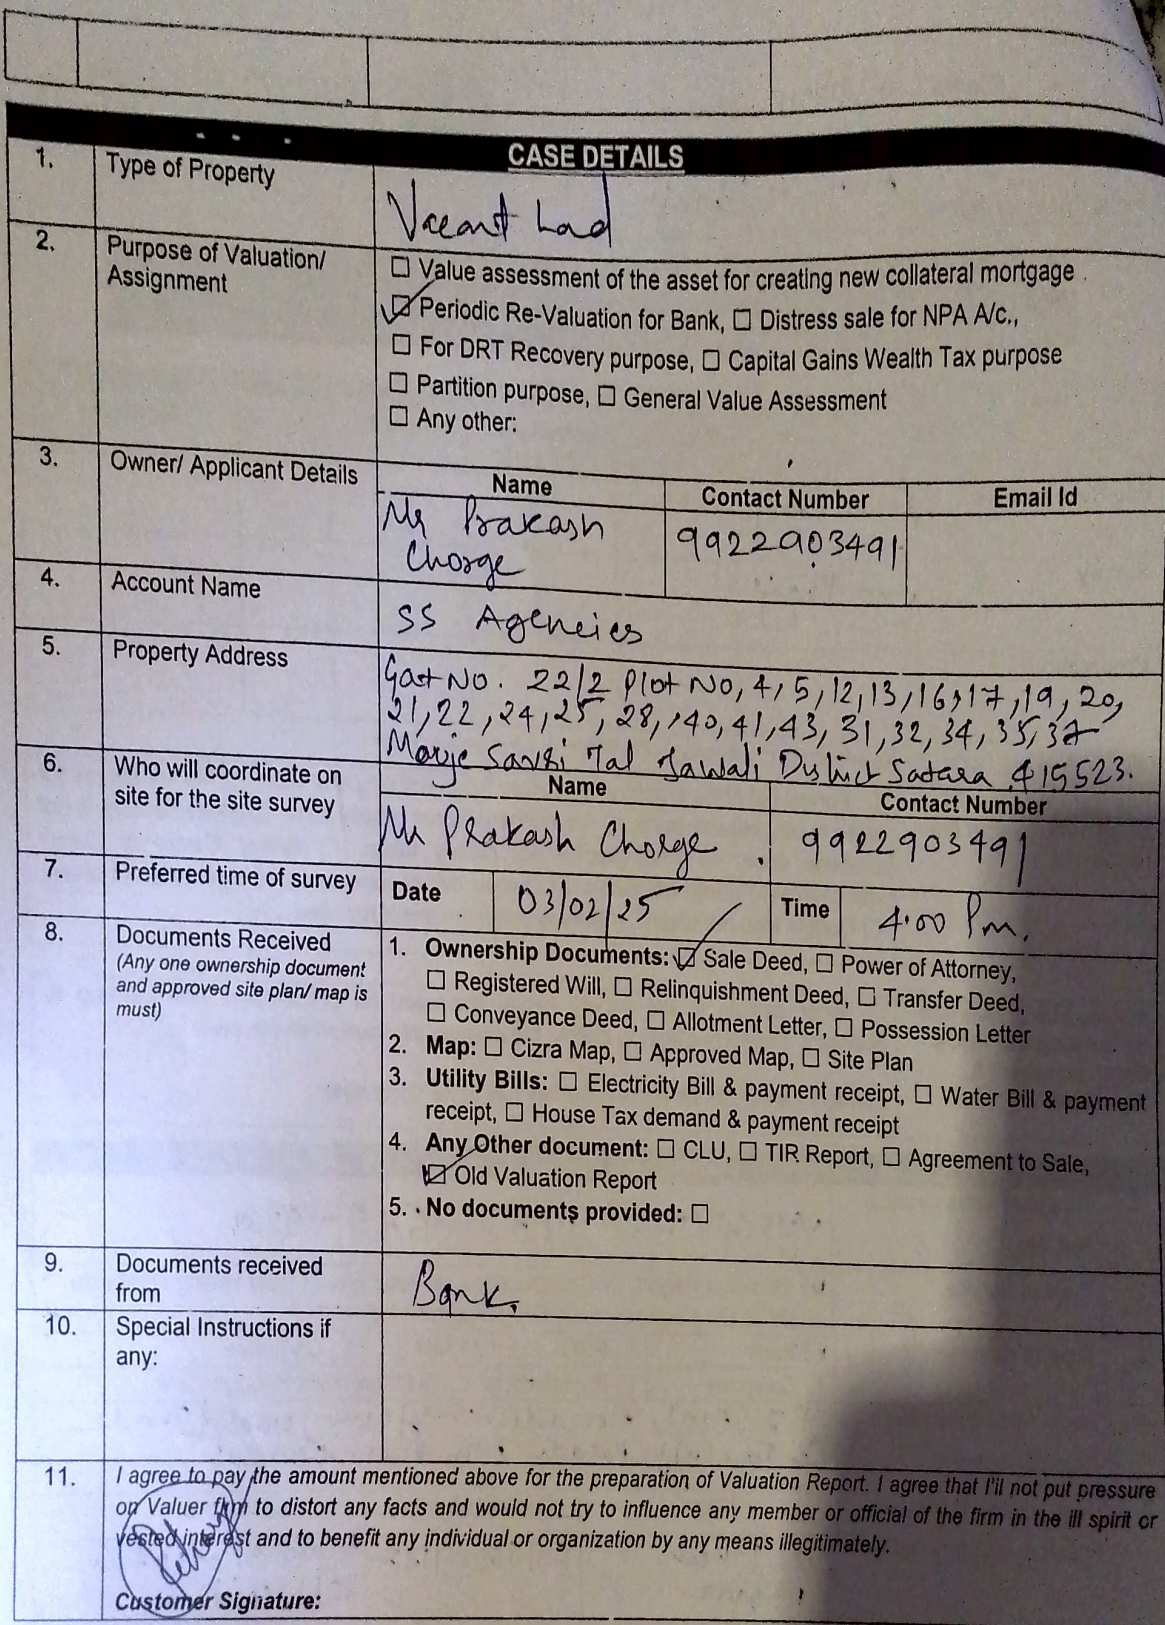 CASE DETAILS
1. Type of Property
Vacant Lad
2. Purpose of Valuation/ Assignment
☐ Value assessment of the asset for creating new collateral mortgage
☑ Periodic Re-Valuation for Bank, ☐ Distress sale for NPA A/c.,
☐ For DRT Recovery purpose, ☐ Capital Gains Wealth Tax purpose
☐ Partition purpose, ☐ General Value Assessment
☐ Any other:
3. Owner/ Applicant Details
Name Contact Number Email Id
Mr Prakash 9922903491
Chorge
4. Account Name
SS Agencies
5. Property Address
Gat No. 22/2 Plot No, 4, 5, 12, 13, 16, 17, 19, 20,
21, 22, 24, 25, 28, 40, 41, 43, 31, 32, 34, 35, 37
Mouje Tal Jawali District Satara 415523.
6. Who will coordinate on
site for the site survey
Name Contact Number
Mr Prakash Chorge 9922903491
7. Preferred time of survey
Date 03/02/25 Time 4.00 Pm.
8. Documents Received
(Any one ownership document
and approved site plan/ map is
must)
1. Ownership Documents: ☑ Sale Deed, ☐ Power of Attorney,
☐ Registered Will, ☐ Relinquishment Deed, ☐ Transfer Deed,
☐ Conveyance Deed, ☐ Allotment Letter, ☐ Possession Letter
2. Map: ☐ Cizra Map, ☐ Approved Map, ☐ Site Plan
3. Utility Bills: ☐ Electricity Bill & payment receipt, ☐ Water Bill & payment
receipt, ☐ House Tax demand & payment receipt
4. Any Other document: ☐ CLU, ☐ TIR Report, ☐ Agreement to Sale,
☑ Old Valuation Report
5. No documents provided: ☐
9. Documents received
from
Bank.
10. Special Instructions if
any:
11. I agree to pay the amount mentioned above for the preparation of Valuation Report. I agree that I'll not put pressure
on Valuer firm to distort any facts and would not try to influence any member or official of the firm in the ill spirit or
vested interest and to benefit any individual or organization by any means illegitimately.
Customer Signature: